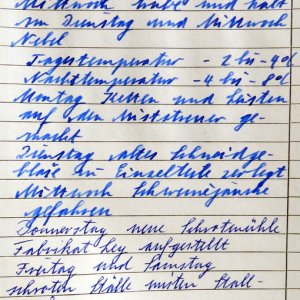 Mittwoch trübe und kalt
am Dienstag und Mittwoch
Nebel
Tagestemperatur - 2 bis - 0°
Nachttemperatur - 4 bis - 8°
Montag Ketten und Leisten
auf den Miststreuer ge-
macht
Dienstag altes Schneidge-
bläse in Einzelteile zerlegt
Mittwoch Schweinejauche
gefahren
Donnerstag neue Schrotmühle
Fabrikat Ley aufgestellt
Freitag und Samstag
schroten Ställe misten Stall-